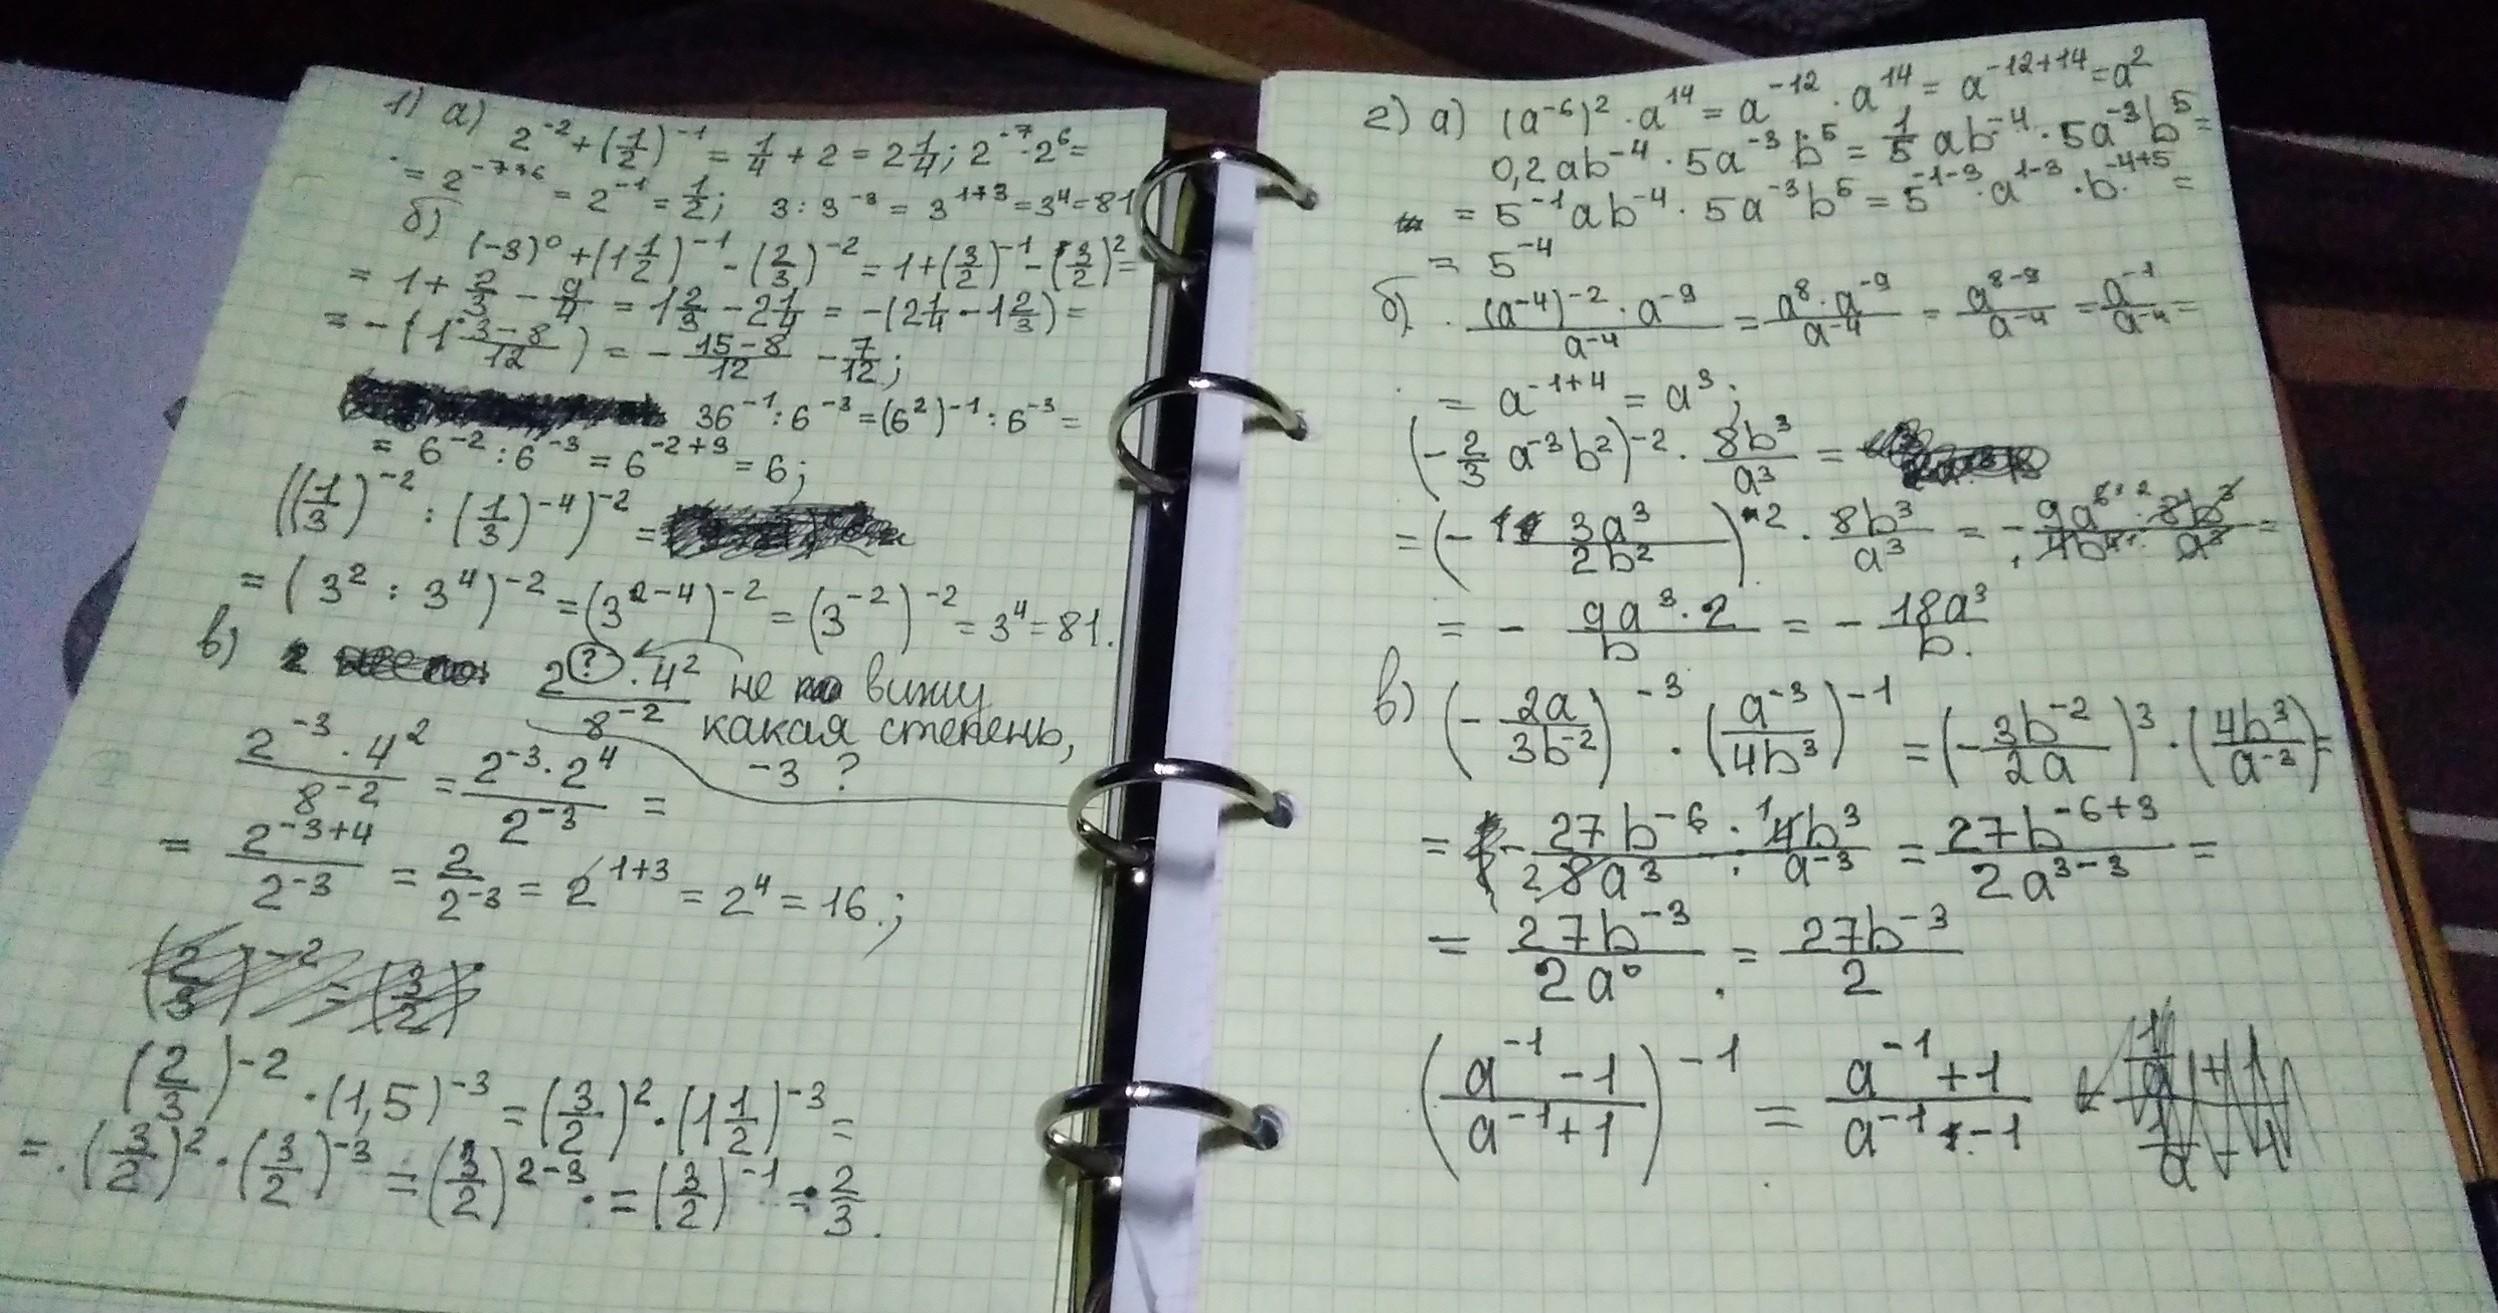 1) а) 2^-2 + (1/2)^-1 = 1/4 + 2 = 2 1/4; 2^-7 · 2^6 =
= 2^-7+6 = 2^-1 = 1/2; 3 : 3^-3 = 3^1+3 = 3^4 = 81
б) (-3)^0 + (1 1/2)^-1 - (2/3)^-2 = 1 + (3/2)^-1 - (3/2)^2 =
= 1 + 2/3 - 9/4 = 1 2/3 - 2 1/4 = -(2 1/4 - 1 2/3) =
= -(1 3-8/12) = - 15-8/12 - 7/12;
36^-1 : 6^-3 = (6^2)^-1 : 6^-3 =
= 6^-2 : 6^-3 = 6^-2+3 = 6;
((1/3)^-2 : (1/3)^-4)^-2 =
= (3^2 : 3^4)^-2 = (3^2-4)^-2 = (3^-2)^-2 = 3^4 = 81.
в) 2^? · 4^2 / 8^-2 не вижу
какая степень,
-3 ?
2^-3 · 4^2 / 8^-2 = 2^-3 · 2^4 / 2^-3 =
= 2^-3+4 / 2^-3 = 2 / 2^-3 = 2^1+3 = 2^4 = 16.;
(2/3)^-2 = (3/2)
(2/3)^-2 · (1,5)^-3 = (3/2)^2 · (1 1/2)^-3 =
= (3/2)^2 · (3/2)^-3 = (3/2)^2-3 = (3/2)^-1 = 2/3.
2) а) (a^-6)^2 · a^14 = a^-12 · a^14 = a^-12+14 = a^2
0,2ab^-4 · 5a^-3b^5 = 1/5 ab^-4 · 5a^-3b^5 =
= 5^-1ab^-4 · 5a^-3b^5 = 5^-1-3 · a^1-3 · b^-4+5 =
= 5^-4
б) (a^-4)^-2 · a^-9 / a^-4 = a^8 · a^-9 / a^-4 = a^8-9 / a^-4 = a^-1 / a^-4 =
= a^-1+4 = a^3;
(-2/3 a^-3b^2)^-2 · 8b^3/a^3 =
= (- 3a^3/2b^2)^2 · 8b^3/a^3 = - 9a^6 · 8b^3 / 4b^4 · a^3 =
= - 9a^3 · 2 / b = - 18a^3/b.
в) (- 2a/3b^-2)^-3 · (a^-3/4b^3)^-1 = (- 3b^-2/2a)^3 · (4b^3/a^-3) =
= - 27b^-6 · 4b^3 / 8a^3 · a^-3 = 27b^-6+3 / 2a^3-3 =
= 27b^-3 / 2a^0 = 27b^-3 / 2
(a^-1 - 1 / a^-1 + 1)^-1 = a^-1 + 1 / a^-1 - 1